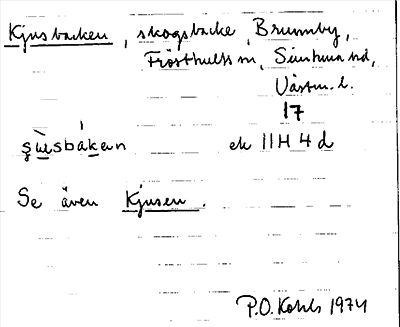 Kjusbacken, skogsbacke, Brumby,
Frösthults sn, Simtuna hd,
Västm. l.
17
ʂʉ̀sbàkɐn ek 11H 4d
Se även Kjusen.
P.O. Kohls 1974